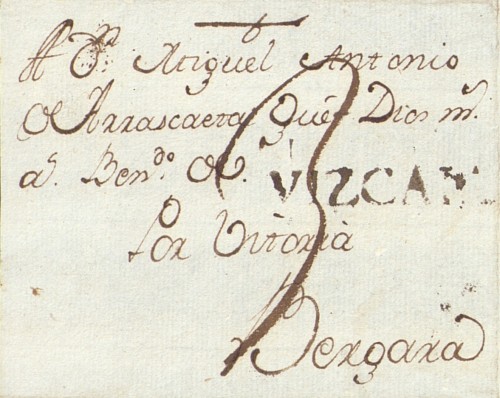 A Dn. Miguel Antonio
de Arrascaeta que Dios ms.
as. Bendo. de.
VIZCAY
3
Por Vitoria
Bergara